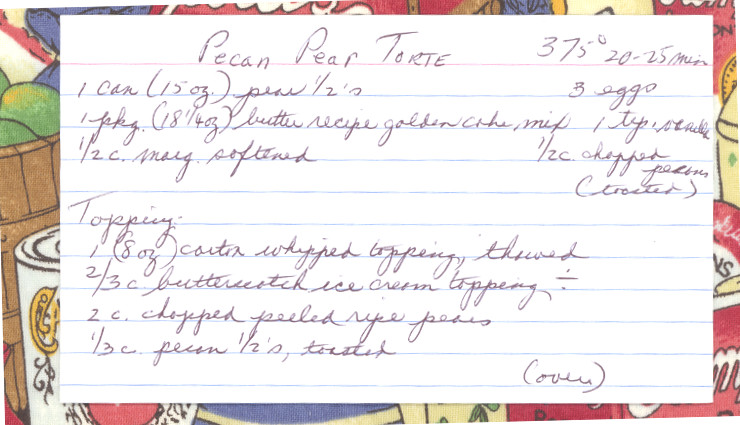 Pecan Pear Torte 375° 20-25 min
1 can (15 oz.) pear 1/2's 3 eggs
1 pkg. (18 1/4 oz) butter recipe golden cake mix 1 tsp. vanilla
1/2 c. marg. softened 1/2 c. chopped pecans
(toasted)
Topping:
1 (8 oz) carton whipped topping, thawed
2/3 c butterscotch ice cream topping ÷
2 c. chopped peeled ripe pears
1/3 c. pecan 1/2's, toasted
(over)